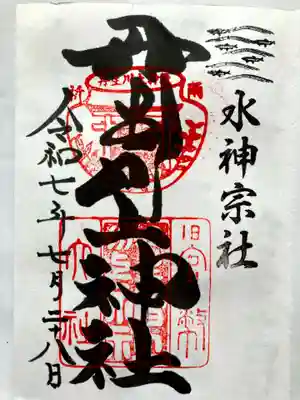 水神宗社
丹生川上神社
令和七年七月二十八日
旧官幣
大社